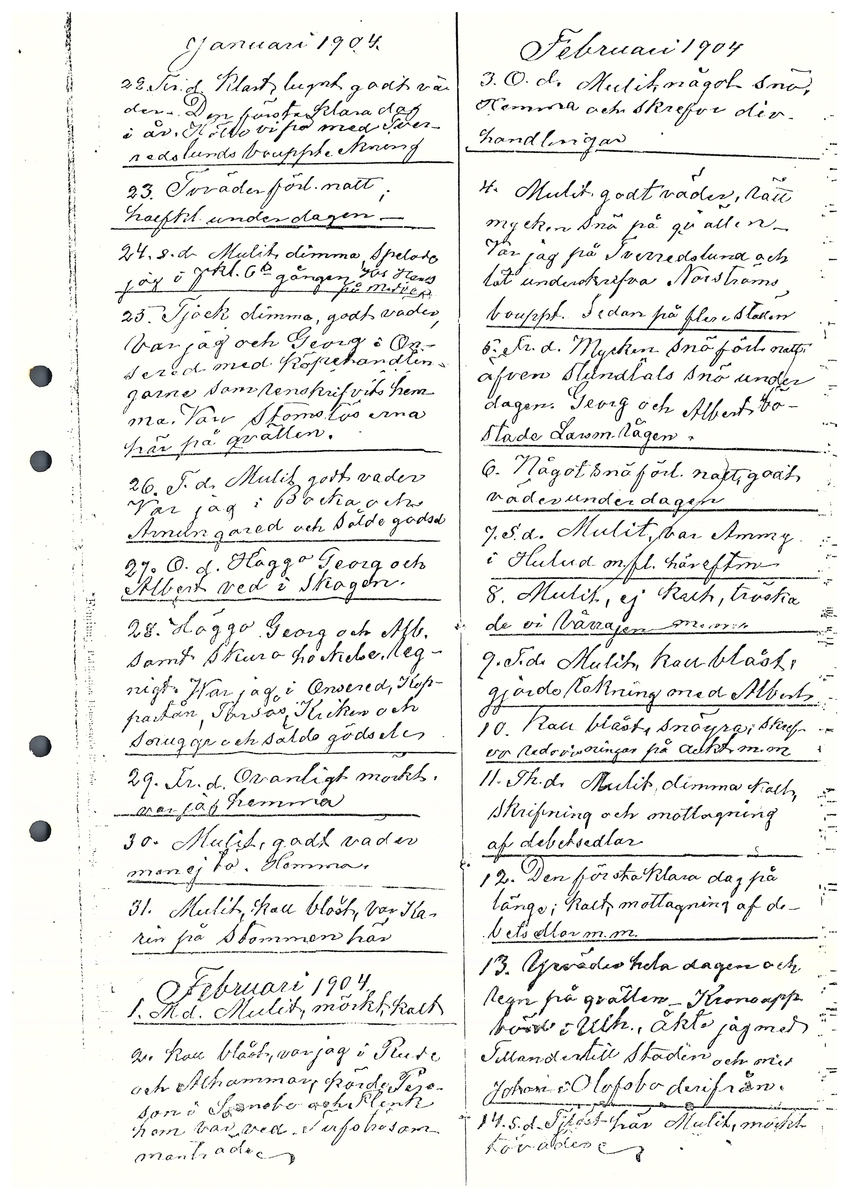 Januari 1904.
22. Fr. d. Klart, lugnt godt vä-
der. Den första klara dag
i år. Höllo vi på med Tver-
redslunds bouppteckning
23. Töväder förl. natt,
half kl. under dagen
24. s. d. Mulit, dimma, spelade
jag i kl. 6 gången hos Hans
på
25. Tjock dimma, godt väder,
var jag och Georg i On-
sered med köpehandlin-
garne som renskrifvits hem-
ma. Varo Stomstöserna
här på qvällen.
26. T. d. Mulit godt väder
Var jag i Backa och
Arnungared och sålde gödsel
27. O. d. Höggo Georg och
Albert ved i Skogen.
28. Höggo Georg och Alb.
samt skuro hackelse, reg-
nigt. Var jag i Onsered, Kop-
partån, Torsås, Kriken och
Sjuggr och sålde gödseln
29. Fr. d. Ovanligt mörkt,
var jag hemma
30. Mulit, godt väder
men ej tö. Hemma.
31. Mulit, kall blåst, var Ka-
rin på Stommen här
Februari 1904.
1. M. d. Mulit, mörkt, kalt
2. Kall blåst, var jag i Rude
och Alhammar, körde Pers-
son i och Flink
hem var ved. som
Februari 1904
3. O. d. Mulit, något snö,
Hemma och skrefvo div.
handlingar
4. Mulit, godt väder, rätt
mycken snö på qvällen
Var jag på Tverredslund och
lät underskrifva Norströms
bouppt. Sedan på flere ställen
5. Fr. d. Mycken snö förl. natt,
äfven stundtals snö under
dagen. Georg och Albert bö-
stade
6. Något snö förl. natt, godt
väder under dagen
7. S. d. Mulit, var Ammy
i Hulud m. fl. här eftm
8. Mulit, ej kalt, tröska
de vi vårrågen m. m.
9. T. d. Mulit, kall blåst,
gjorde tökning med Albert
10. Kall blåst, snöyra, skref-
vo redovisningar på debt. m. m
11. Th. d. Mulit, dimma kalt,
skrifning och mottagning
af debetsedlar
12. Den första klara dag på
länge, kalt, mottagning af de-
betsedlar m. m.
13. Yrväder hela dagen och
regn på qvällen – Kronoupp
börd i Ulh., åkte jag med
Tillander till staden och med
Johan i Olofsbo derifrån.
14. s. d. Tjöst här Mulit, mörkt
töväder